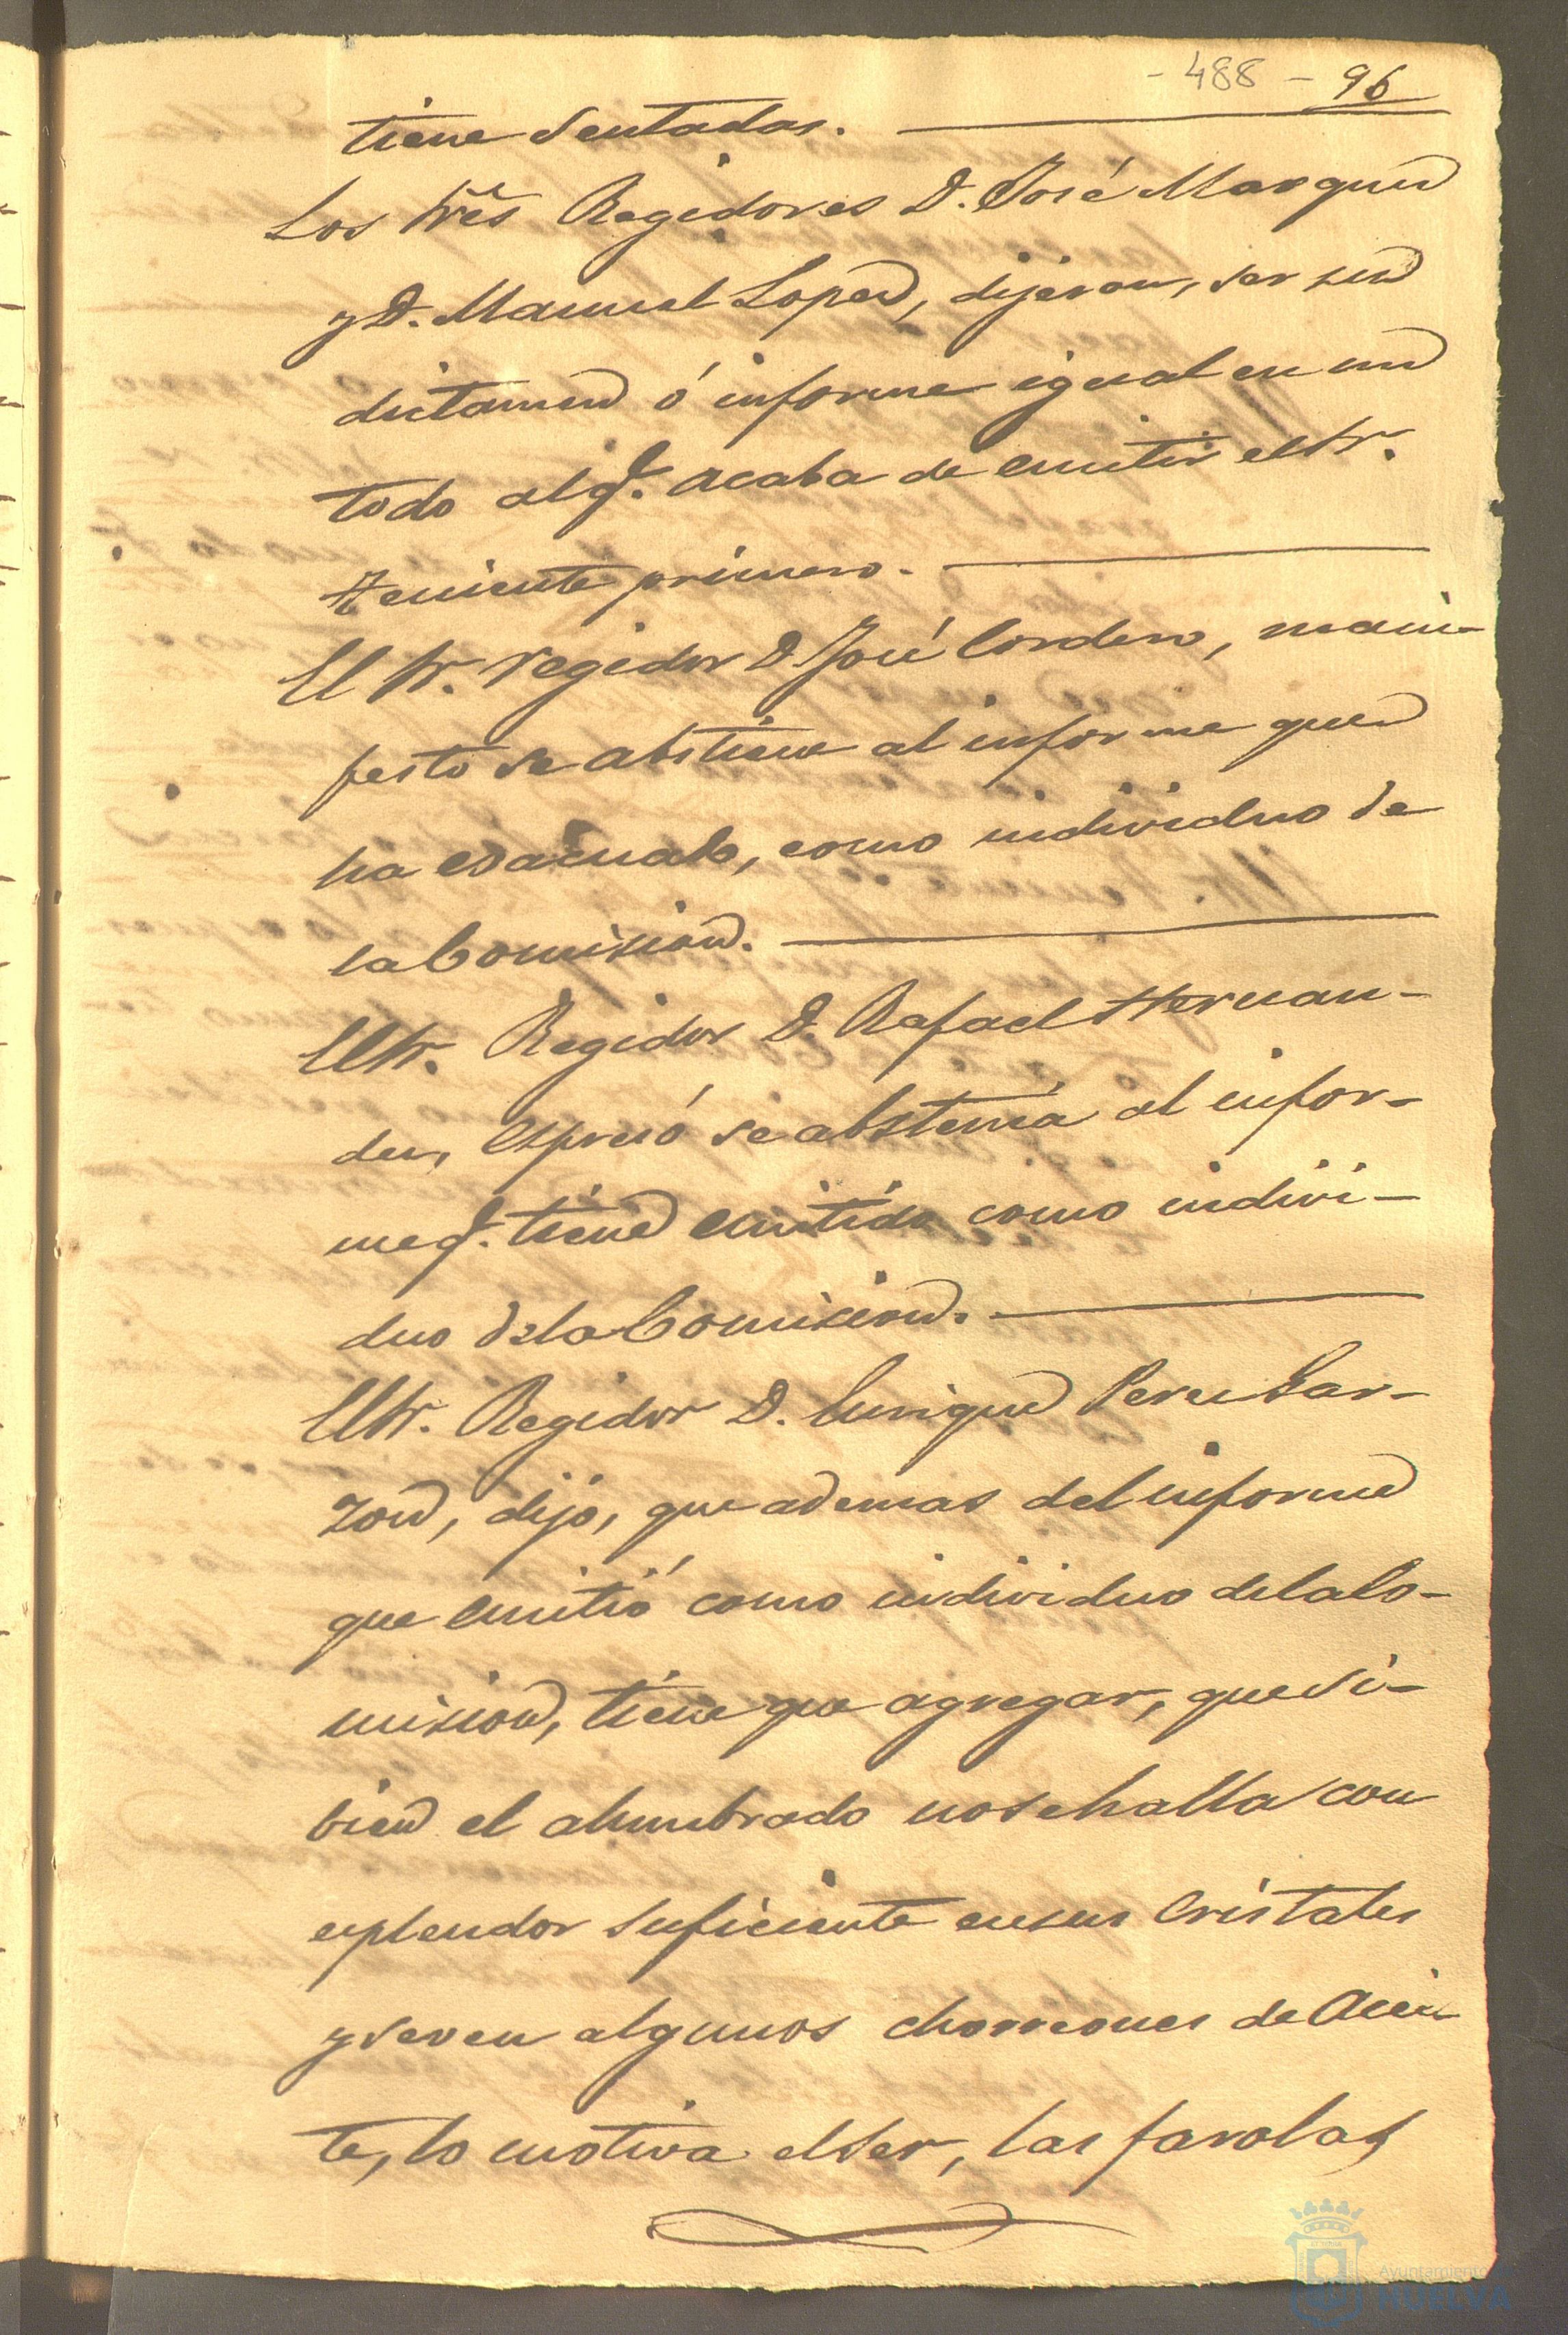 - 488 - 96
tiene sentadas.
Los Sres Regidores D. José Marquez
y D. Manuel Lopez, dijeron, ser su
dictamen ó informe igual en un
todo al q.e acaba de emitir el Sr.
Teniente primero.
El Sr. regidor D José Cordero, mani-
festó se abstiene al informe que
ha evacuado, como individuo de
la Comision.
El Sr. Regidor D. Rafael Hernan-
dez, espresó se abstenia al infor-
me q.e tiene emitido como indivi-
duo de la Comision.
El Sr. Regidor D. Enrique Perez Gar-
zon, dijo, que ademas del informe
que emitió como individuo de la Co-
mision, tiene que agregar, que si-
bien el alumbrado no se halla con
esplendor suficiente en sus Cristales
y se ven algunos chorreones de Acei-
te, lo motiva el ser, las farolas
Ayuntamiento de
HUELVA